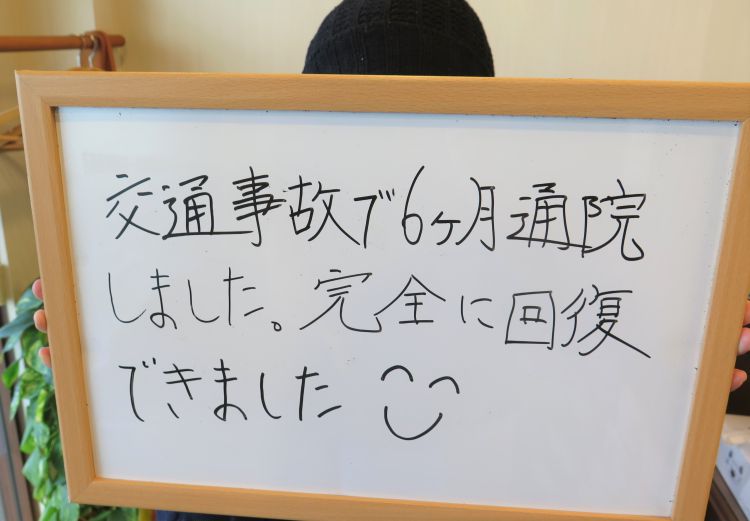 交通事故で6ヶ月通院
しました。完全に回復
できました